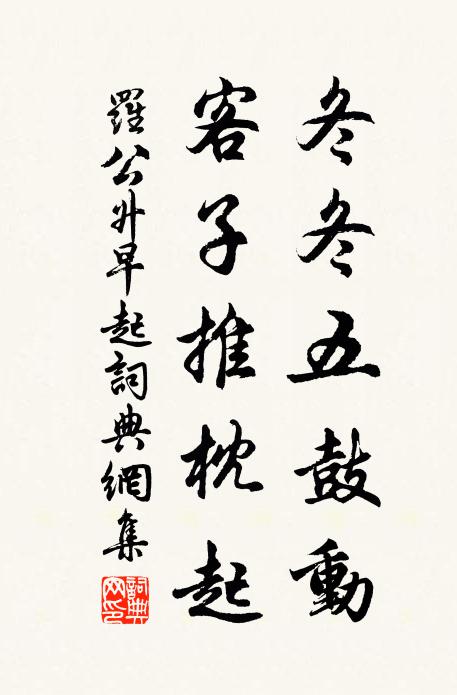 冬冬五鼓動
客子推枕起
羅公升早起詞典網集
詞典網印